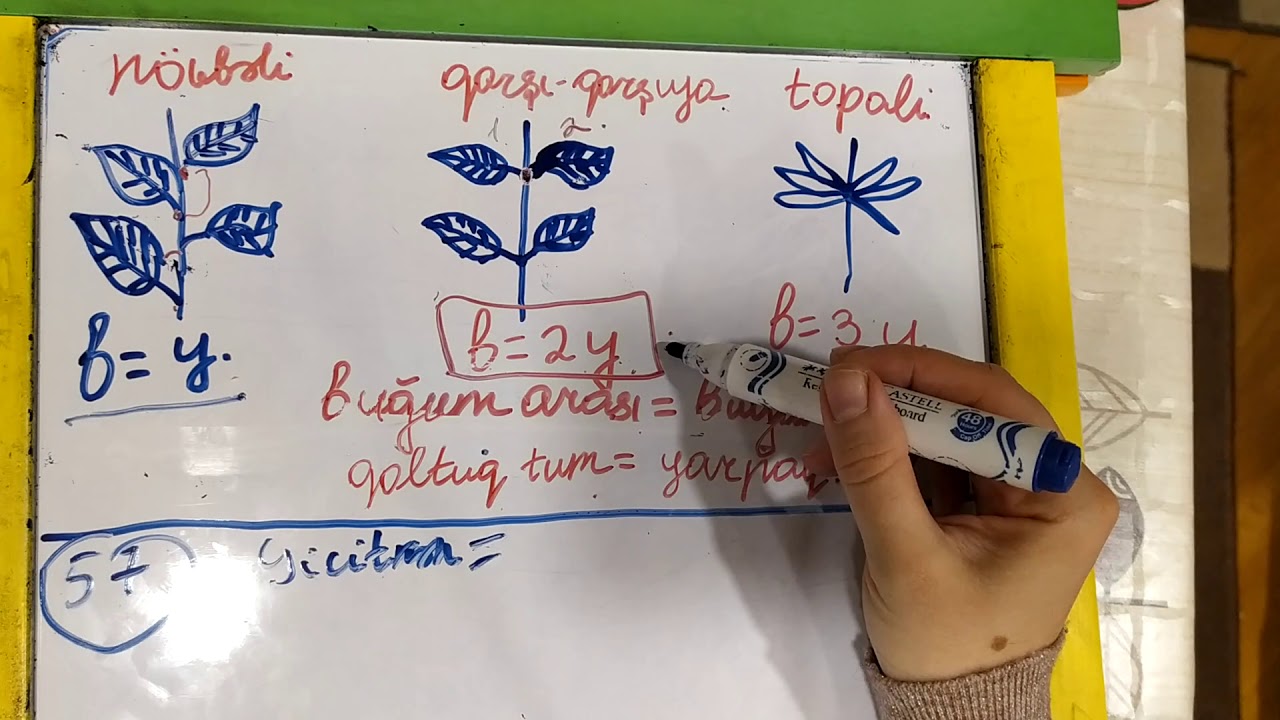 növbəli
qarşı-qarşıya
topali
1 2
b = y.
b = 2 y
b = 3 y
buğum arası =
qoltuq tum = yarpaq
ASTELL
board
48
57